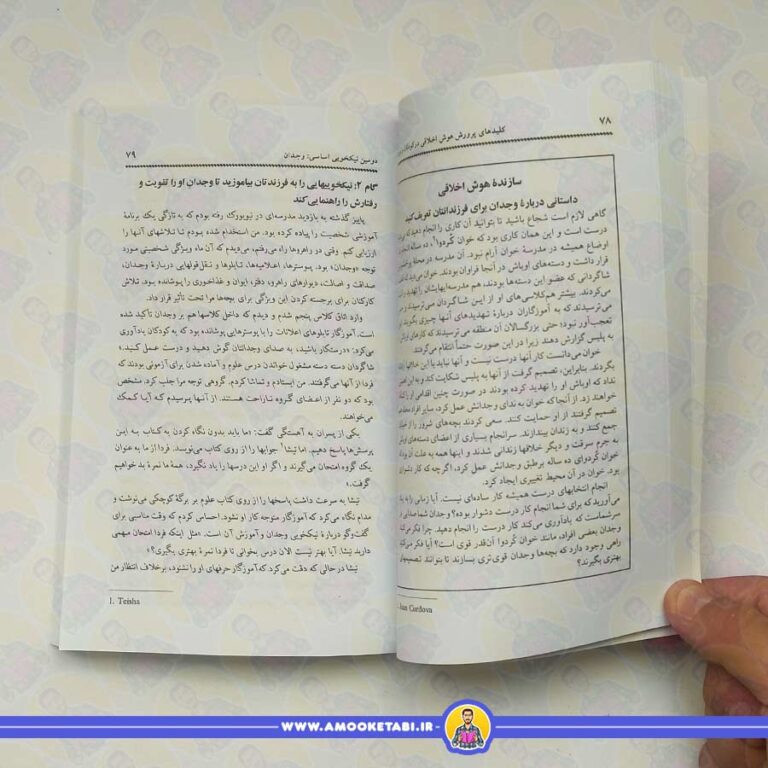 ۷۸
کلیدهای پرورش هوش اخلاقی در کودکان و
سازندهٔ هوش اخلاقی
داستانی دربارهٔ وجدان برای فرزندانتان تعریف کنید
گاهی لازم است شجاع باشید تا بتوانید آن کاری را انجام دهید که
درست است و این همان کاری بود که خوان کُردوا۱ ده ساله انجام
اوضاع همیشه در مدرسهٔ خوان آرام نبود. آن مدرسه در محلهٔ
قرار داشت و دسته‌های اوباش در آنجا فراوان بودند. خوان می‌دید که
شاگردانی که عضو این دسته‌ها بودند، هم مدرسه‌ایهایشان را تهدید
می‌کردند. بیشتر هم‌کلاسی‌های او از این شاگردان می‌ترسیدند و
می‌ترسیدند که به آموزگاران دربارهٔ تهدیدهای آنها چیزی بگویند
تعجب‌آور نبود؛ حتی بزرگسالان آن منطقه می‌ترسیدند که کارهای
به پلیس گزارش دهند زیرا در این صورت حتماً انتقام می‌گرفتند.
خوان می‌دانست کار آنها درست نیست و آنها نباید با این خلافها
بگردند. بنابراین، تصمیم گرفت از آنها به پلیس شکایت کند و به این
نداد که اوباش او را تهدید کرده بودند در صورت چنین اقدامی او را
خواهند زد. از آنجا که خوان به ندای وجدانش عمل کرد، سایر افراد
تصمیم گرفتند از او حمایت کنند. سعی کردند بچه‌های شرور را از
جمع کنند و به زندان بیندازند. سرانجام بسیاری از اعضای دسته‌های
به جرم سرقت و دیگر خلافها زندانی شدند و اینها همه به علت آن بود
خوان کُردوای ده ساله برطبق وجدانش عمل کرد، اگرچه که کار دشواری
بود. خوان در آن محیط تغییری ایجاد کرد.
انجام انتخابهای درست همیشه کار ساده‌ای نیست. آیا زمانی را به یاد
می‌آورید که برای شما انجام کار درست دشوار بوده؟ وجدان شما صدایی در
سرشماست که یادآوری می‌کند کار درست را انجام دهید. چرا فکر می‌کنید
وجدان بعضی افراد، مانند خوان کُردوا آن‌قدر قوی است؟ آیا فکر می‌کنید
راهی وجود دارد که بچه‌ها وجدان قوی‌تری بسازند تا بتوانند تصمیمهای
بهتری بگیرند؟
Juan Cordova
دومین نیکخویی اساسی: وجدان
۷۹
گام ۲: نیکخوییهایی را به فرزندتان بیاموزید تا وجدان او را تقویت و
رفتارش را راهنمایی کند
پاییز گذشته به بازدید مدرسه‌ای در نیویورک رفته بودم که به تازگی یک برنامهٔ
آموزشی شخصیت را پیاده کرده بود. من استخدام شده بودم تا تلاشهای آنها را
ارزیابی کنم. وقتی در راهروها راه می‌رفتم، می‌دیدم که آن ماه ویژگی شخصیتی مورد
توجه «وجدان» بود. پوسترها، اعلامیه‌ها، تابلوها و نقل‌قولهایی دربارهٔ وجدان،
صداقت و اصالت، دیوارهای راهرو، دفتر، ایوان و غذاخوری را پوشانده بود. تلاش
کارکنان برای برجسته کردن این ویژگی برای بچه‌ها مرا تحت تأثیر قرار داد.
وارد اتاق کلاس پنجم شدم و دیدم که داخل کلاسها هم بر وجدان تأکید شده
است. آموزگار تابلوهای اعلانات را با پوسترهایی پوشانده بود که به کودکان یادآوری
می‌کرد: «درستکار باشید، به صدای وجدانتان گوش دهید و درست عمل کنید.»
شاگردان دسته دسته مشغول خواندن درس علوم و آماده شدن برای آزمونی بودند که
فردا از آنها می‌گرفتند. من ایستادم و تماشا کردم. گروهی توجه مرا جلب کرد. مشخص
بود که دو نفر از اعضای گروه ناراحت هستند. از آنها پرسیدم که آیا کمک
می‌خواهند.
یکی از پسران به آهستگی گفت: «ما باید بدون نگاه کردن به کتاب به این
پرسش‌ها پاسخ دهیم. اما تیشا۱ جوابها را از روی کتاب می‌نویسد. فردا از ما به عنوان
یک گروه امتحان می‌گیرند و اگر او این درسها را یاد نگیرد، همهٔ ما نمرهٔ بد خواهیم
گرفت.»
تیشا به سرعت داشت پاسخها را از روی کتاب علوم بر برگهٔ کوچکی می‌نوشت و
مدام نگاه می‌کرد که آموزگار متوجه کار او نشود. احساس کردم که وقت مناسبی برای
گفت‌وگو دربارهٔ نیکخویی وجدان و آموزش آن است. «مثل اینکه فردا امتحان مهمی
دارید تیشا. آیا بهتر نیست الان درس بخوانی تا فردا نمرهٔ بهتری بگیری؟»
تیشا در حالی که دقت می‌کرد که آموزگار حرفهای او را نشنود، برخلاف انتظار من
1. Teisha
WWW.AMOOKETABI.IR